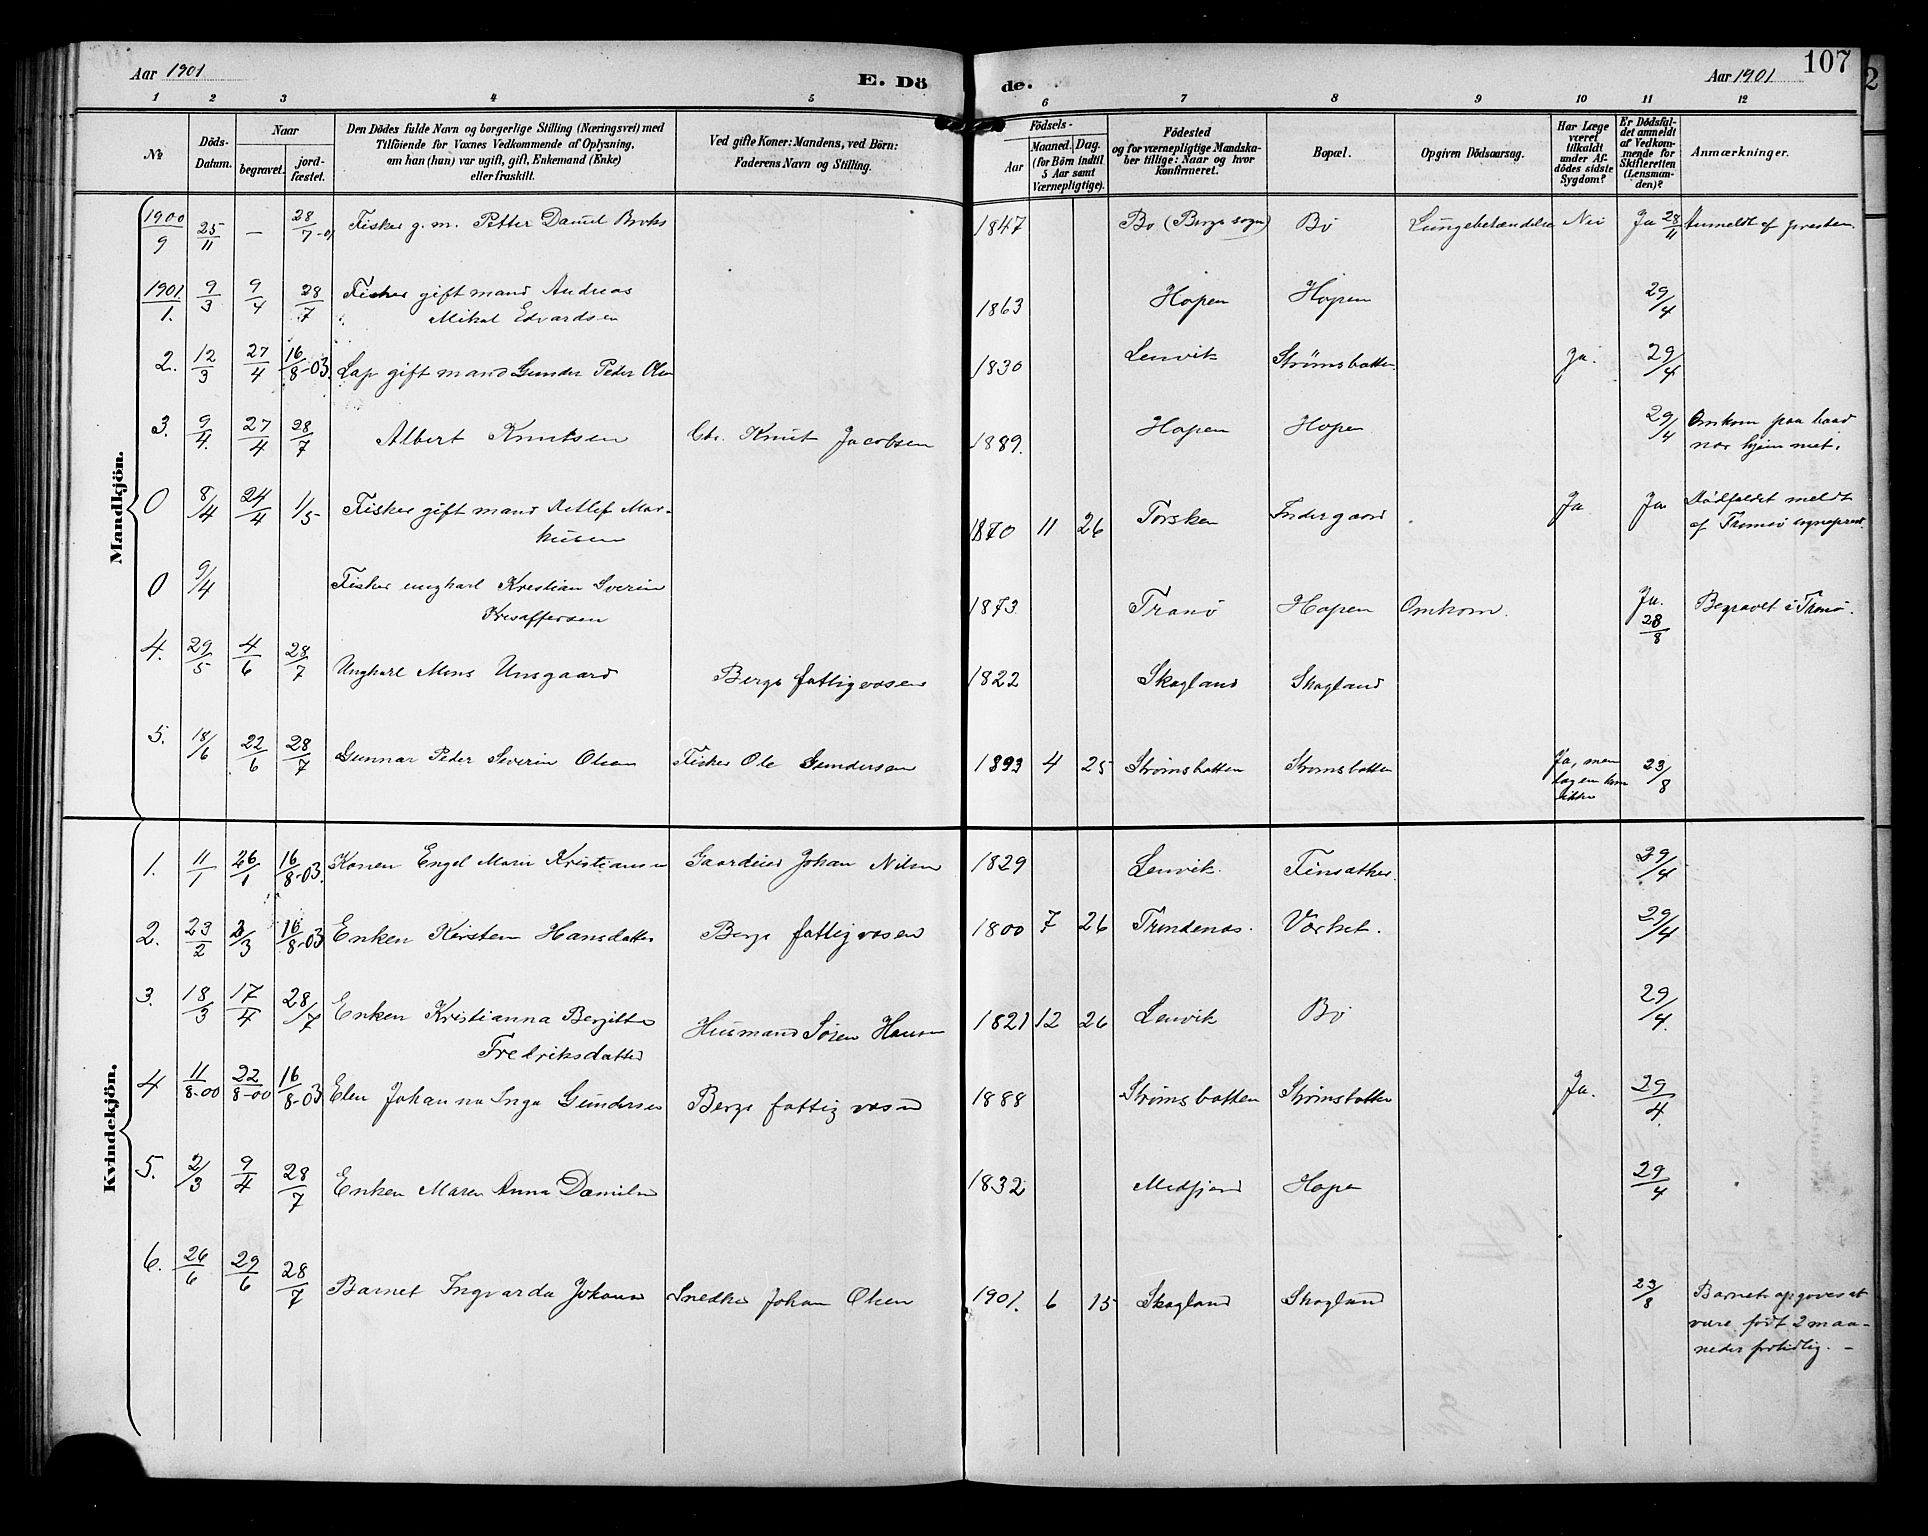 Aar 1901
E. Dö
de.
Aar 1901
107
1 2 3 4 5 6 7 8 9 10 11 12
№
Döds-Datum.
Naar
begravet.
jord-fæstet.
Den Dödes fulde Navn og borgerlige Stilling (Næringsvei) med
Tilföiende for Voxnes Vedkommende af Oplysning,
om han (hun) var ugift, gift, Enkemand (Enke)
eller fraskilt.
Ved gifte Koner: Mandens, ved Börn:
Faderens Navn og Stilling.
Födsels-
Aar
Maaned. Dag.
(for Börn indtil
5 Aar samt
Værnepligtige).
Födested
og for værnepligtige Mandska-
ber tillige: Naar og hvor
konfirmeret.
Bopæl.
Opgiven Dödsaarsag.
Har Læge
været
tilkaldt
under Af-
dödes sidste
Sygdom?
Er Dödsfal-
det anmeldt
af Vedkom-
mende for
Skifteretten
(Lensman-
den)?
Anmærkninger.
Mandkjön.
1900/9 25/11 — 28/7-01 Fisker g. m. Petter Daniel 1847 Bø (Bergs sogn) Bø Lungebetændelse Nei Ja 28/11 Anmeldt af presten.
1901/1. 9/3 9/4 28/7 Fisker gift mand Andreas
Mikal Edvardsen 1863 Hopen Hopen 29/4
2. 12/3 27/4 16/8-03. Lap gift mand Gunder Peder Olsen 1830 Lenvik Strømsbotten Ja. 29/4
3. 9/4. 27/4 28/7 Albert Knutsen Knut Jacobsen 1889. Hopen Hopen 29/4 Omkom paa baad
nær hjemmet.
0 8/4 24/4 1/5 Fisker gift mand Detlef Mar-
kusen 1870 11 26 Torsken Indergaard Ja Ja Dødsfaldet meldt
af Tromsø sogneprest
0 9/4 Fisker ungkarl Kristian Sverin
1873 Tranø Hopen Omkom. Ja. 28/8 Begravet i Tranø.
4. 29/5 4/6 28/7 Ungkarl Mons Unsgaard Bergs fattigvæsen 1822 Skogland Skogland
5. 18/6 22/6 28/7 Gunnar Peder Severin Olsen Fisker Ole Gundersen 1893 4 25 Strømsbotten Strømsbotten Ja, men
lægen kom
ikke 23/8
Kvindekjön.
1. 11/1 26/1 16/8-03. Konen Engel Marie Kristiansen Gaardeier Johan Nilsen 1829 Lenvik. Finsæther. 29/4
2. 23/2 3/3 16/8-03 Enken Kirsten Hansdatter Bergs fattigvæsen 1800 7 26 Trondenæs. 29/4
3. 18/3 17/4 28/7 Enken Kristianna Bergitte
Fredriksdatter Husmand Søren Hansen 1821 12 26 Lenvik Bø 29/4.
4 11/8-00 22/8-00 16/8-03 Elen Johanna Inga Gundersen Bergs fattigvæsen 1888 Strømsbotten Strømsbotten Ja. 29/4.
5. 2/3 9/4 28/7 Enken Maren Anna Danielsen 1832 Medfjord Hopen 29/4
6. 26/6 29/6 28/7 Barnet Ingvarda Johansen Snedker Johan Olsen 1901. 6 15 Skogland Skogland 23/8 Barnet opgives at
være født 2 maa-
neder fortidlig. —